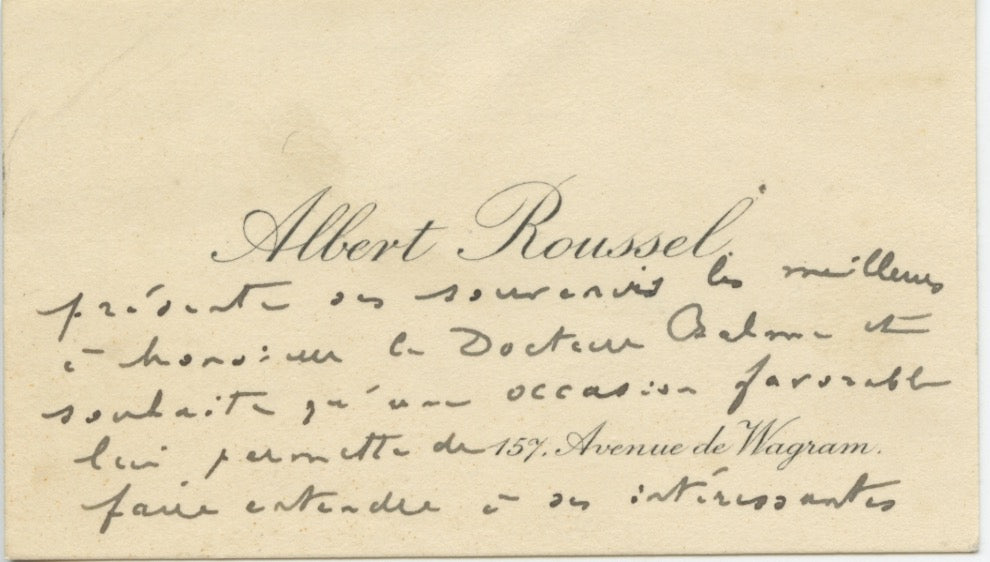 Albert Roussel
présente ses souvenirs les meilleurs
à Monsieur le Docteur Balme et
souhaite qu'une occasion favorable
lui permette de 157, Avenue de Wagram.
faire entendre à ses intéressantes